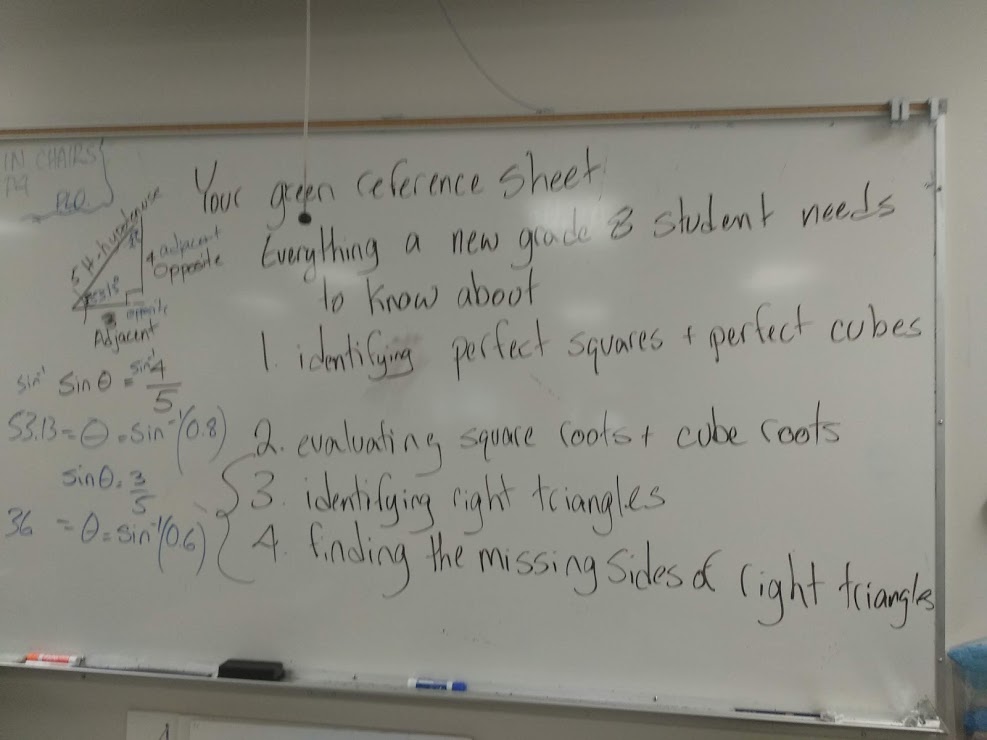 IN CHAIRS
PLO
Your green reference sheet
Everything a new grade 8 student needs
to know about
1. identifying perfect squares + perfect cubes
2. evaluating square roots + cube roots
3. identifying right triangles
4. finding the missing sides of right triangles
5 H-hypotenuse
4 adjacent
Opposite
53.13°
opposite
3
Adjacent
sin⁻¹ sin θ = sin⁻¹ 4/5
53.13 = θ = sin⁻¹(0.8)
sin θ = 3/5
36 = θ = sin⁻¹(0.6)